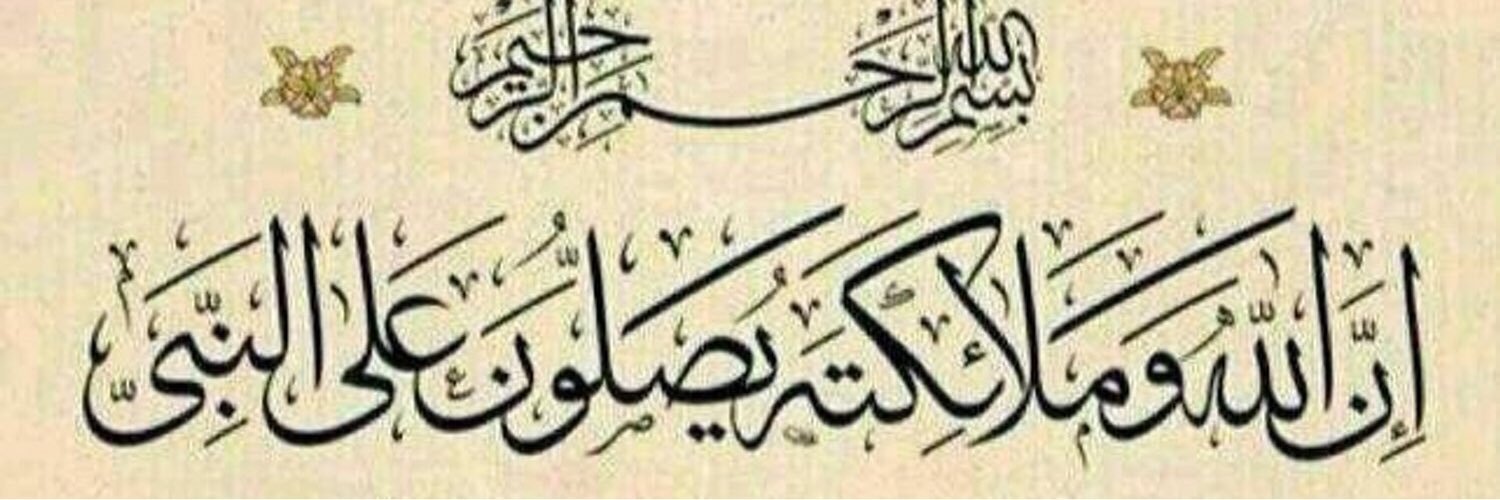 بسم الله الرحمن الرحيم
إِنَّ اللّٰهَ وَمَلَائِكَتَهُ يُصَلُّونَ عَلَى النَّبِيِّ